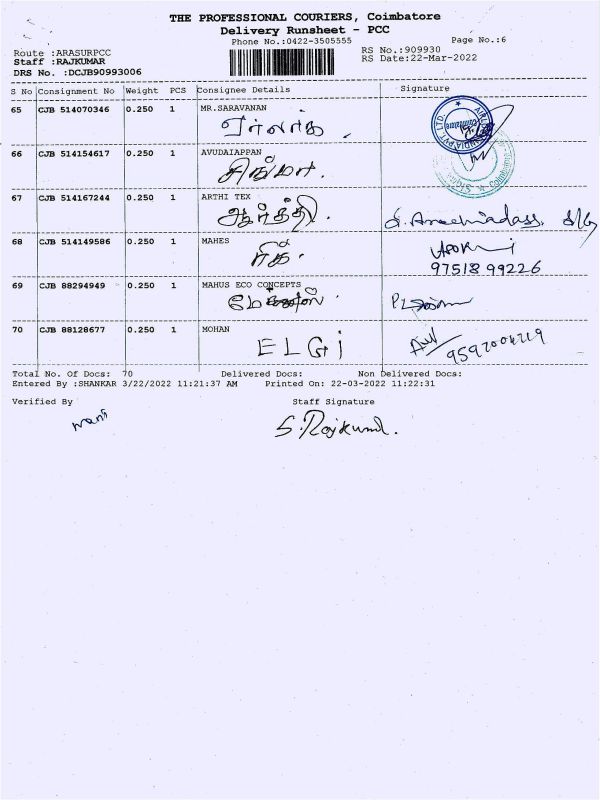 THE PROFESSIONAL COURIERS, Coimbatore
Delivery Runsheet - PCC
Phone No.:0422-3505555 Page No.:6
Route :ARASURPCC RS No.:909930
Staff :RAJKUMAR RS Date:22-Mar-2022
DRS No. :DCJB90993006
S No Consignment No Weight PCS Consignee Details Signature
65 CJB 514070346 0.250 1 MR.SARAVANAN
66 CJB 514154617 0.250 1 AVUDAIAPPAN
சிக்மா.
67 CJB 514167244 0.250 1 ARTHI TEX
ஆர்த்தி.
68 CJB 514149586 0.250 1 MAHES
97518 99226
69 CJB 88294949 0.250 1 MAHUS ECO CONCEPTS
70 CJB 88128677 0.250 1 MOHAN
ELGi
Total No. Of Docs: 70 Delivered Docs: Non Delivered Docs:
Entered By :SHANKAR 3/22/2022 11:21:37 AM Printed On: 22-03-2022 11:22:31
Verified By Staff Signature
mani S.Rajkumar.